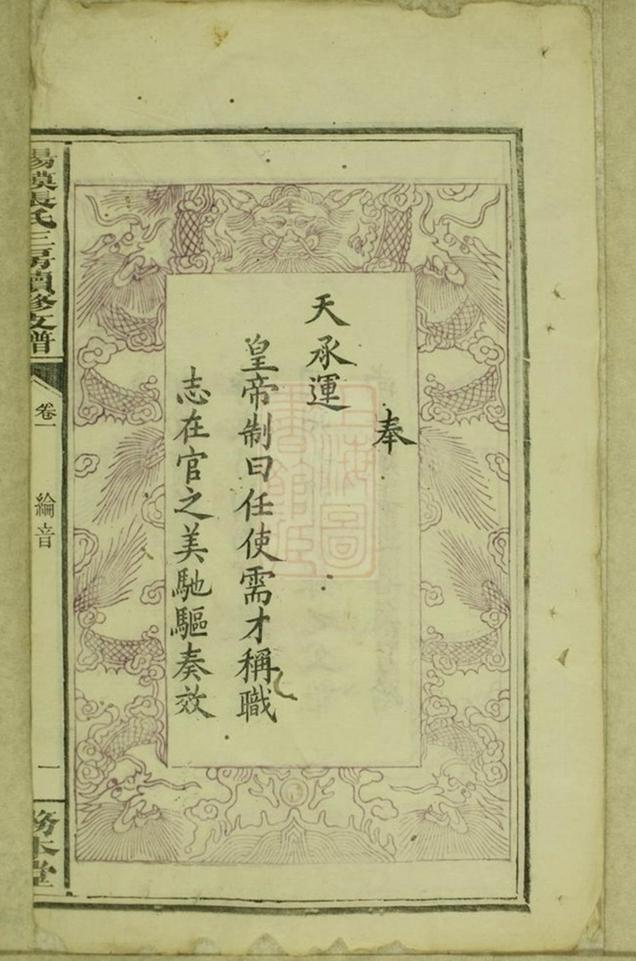 奉
天承運
皇帝制曰任使需才稱職
志在官之美馳驅奏效
張氏三房續修支譜
卷一
綸音
一
務本堂
上海圖書館藏